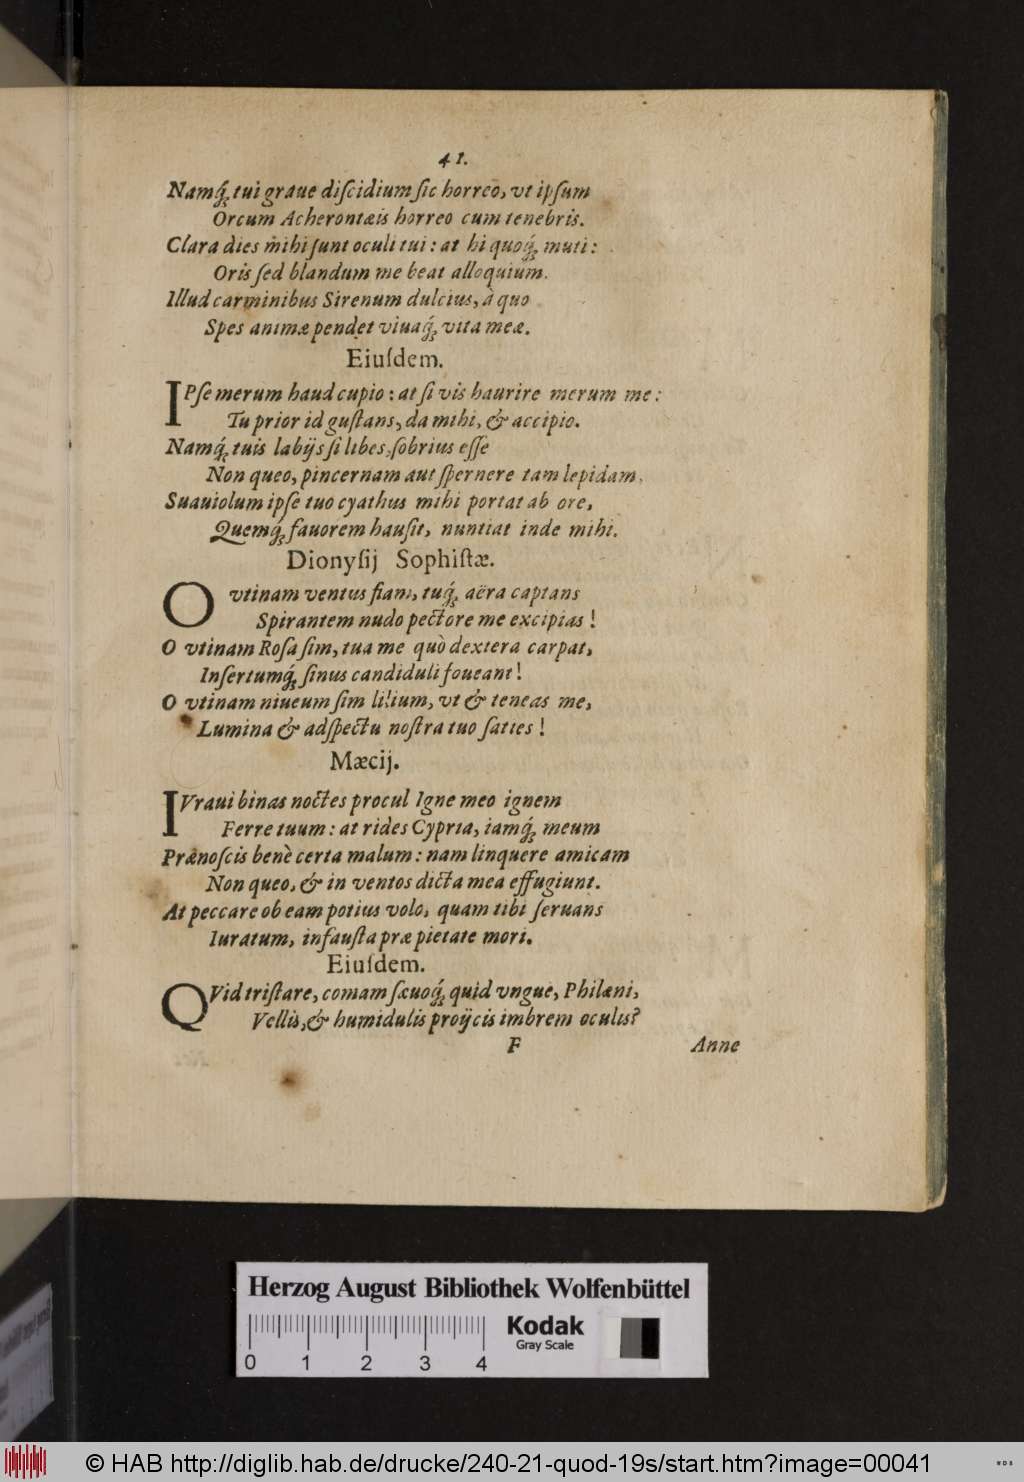 41.
Namq́; tui graue diſcidium ſic horreo, vt ipſum
Orcum Acherontæis horreo cum tenebris.
Clara dies mihi ſunt oculi tui: at hi quoq́; muti:
Oris ſed blandum me beat alloquium.
Illud carminibus Sirenum dulcius, à quo
Spes animæ pendet viuaq́; vita meæ.
Eiuſdem.
IPſe merum haud cupio: at ſi vis haurire merum me:
Tu prior id guſtans, da mihi, & accipio.
Namq́; tuis labijs ſi libes, ſobrius eſſe
Non queo, pincernam aut ſpernere tam lepidam.
Suauiolum ipſe tuo cyathus mihi portat ab ore,
Quemq́; fauorem hauſit, nuntiat inde mihi.
Dionyſij Sophiſtæ.
O vtinam ventus fiam, tuq́; aëra captans
Spirantem nudo pectore me excipias!
O vtinam Roſa ſim, tua me quò dextera carpat,
Inſertumq́; ſinus candiduli foueant!
O vtinam niueum ſim lilium, vt & teneas me,
Lumina & adſpectu noſtra tuo ſaties!
Mæcij.
IVraui binas noctes procul Igne meo ignem
Ferre tuum: at rides Cypria, iamq́; meum
Prænoſcis benè certa malum: nam linquere amicam
Non queo, & in ventos dicta mea effugiunt.
At peccare ob eam potius volo, quam tibi ſeruans
Iuratum, infauſta præ pietate mori.
Eiuſdem.
QVid triſtare, comam ſæuoq́; quid vngue, Philæni,
Vellis, & humidulis proijcis imbrem oculis?
F Anne
Herzog August Bibliothek Wolfenbüttel
Kodak
Gray Scale
0 1 2 3 4
© HAB http://diglib.hab.de/drucke/240-21-quod-19s/start.htm?image=00041